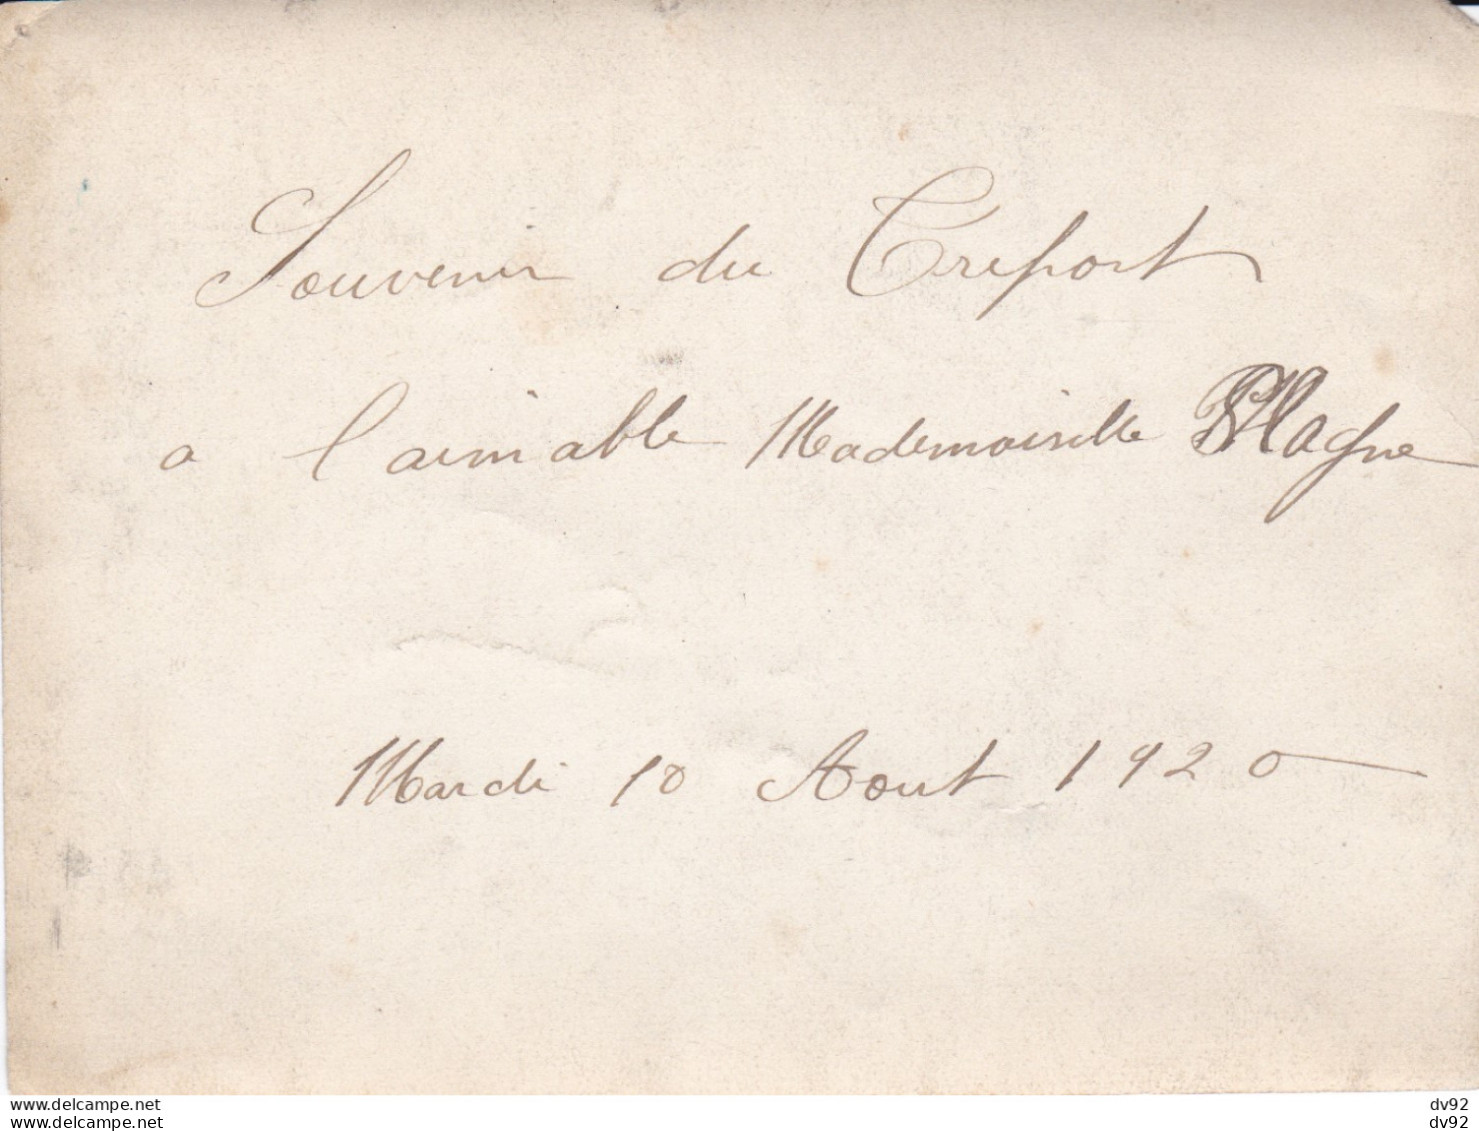 Souvenir du Treport
a l'aimable Mademoiselle Magne
Mardi 10 Aout 1920
www.delcampe.net
www.delcampe.net
dv92
dv92